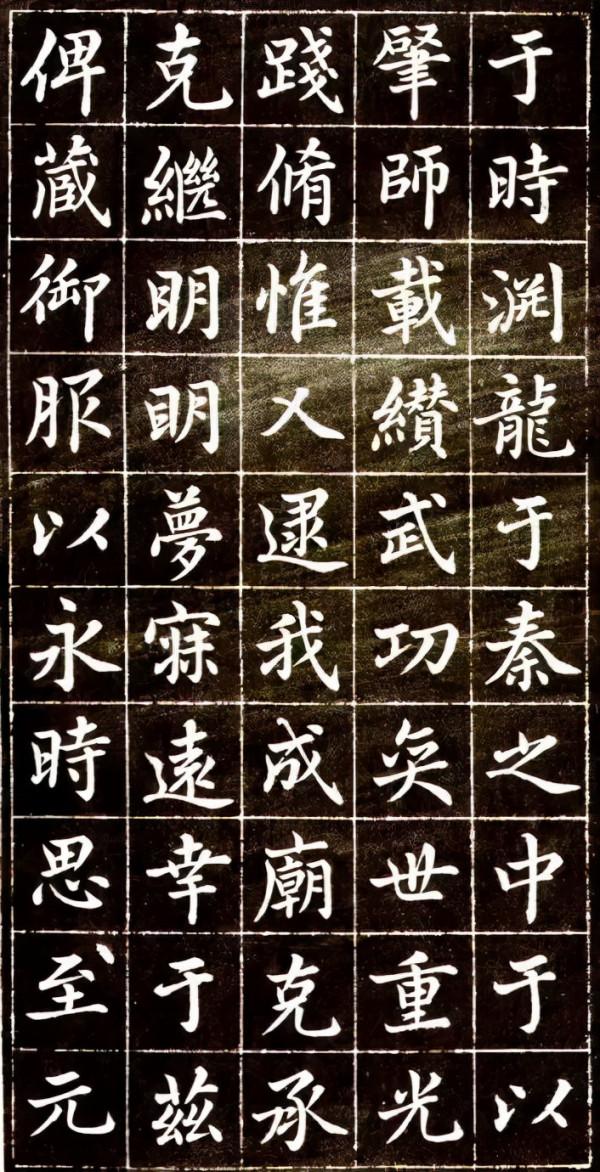 于時淵龍于秦之中于以
肇師載纘武功奕世重光
踐脩惟乂逮我成廟克承
克繼明明夢寐遠幸于茲
俾藏御服以永時思至元